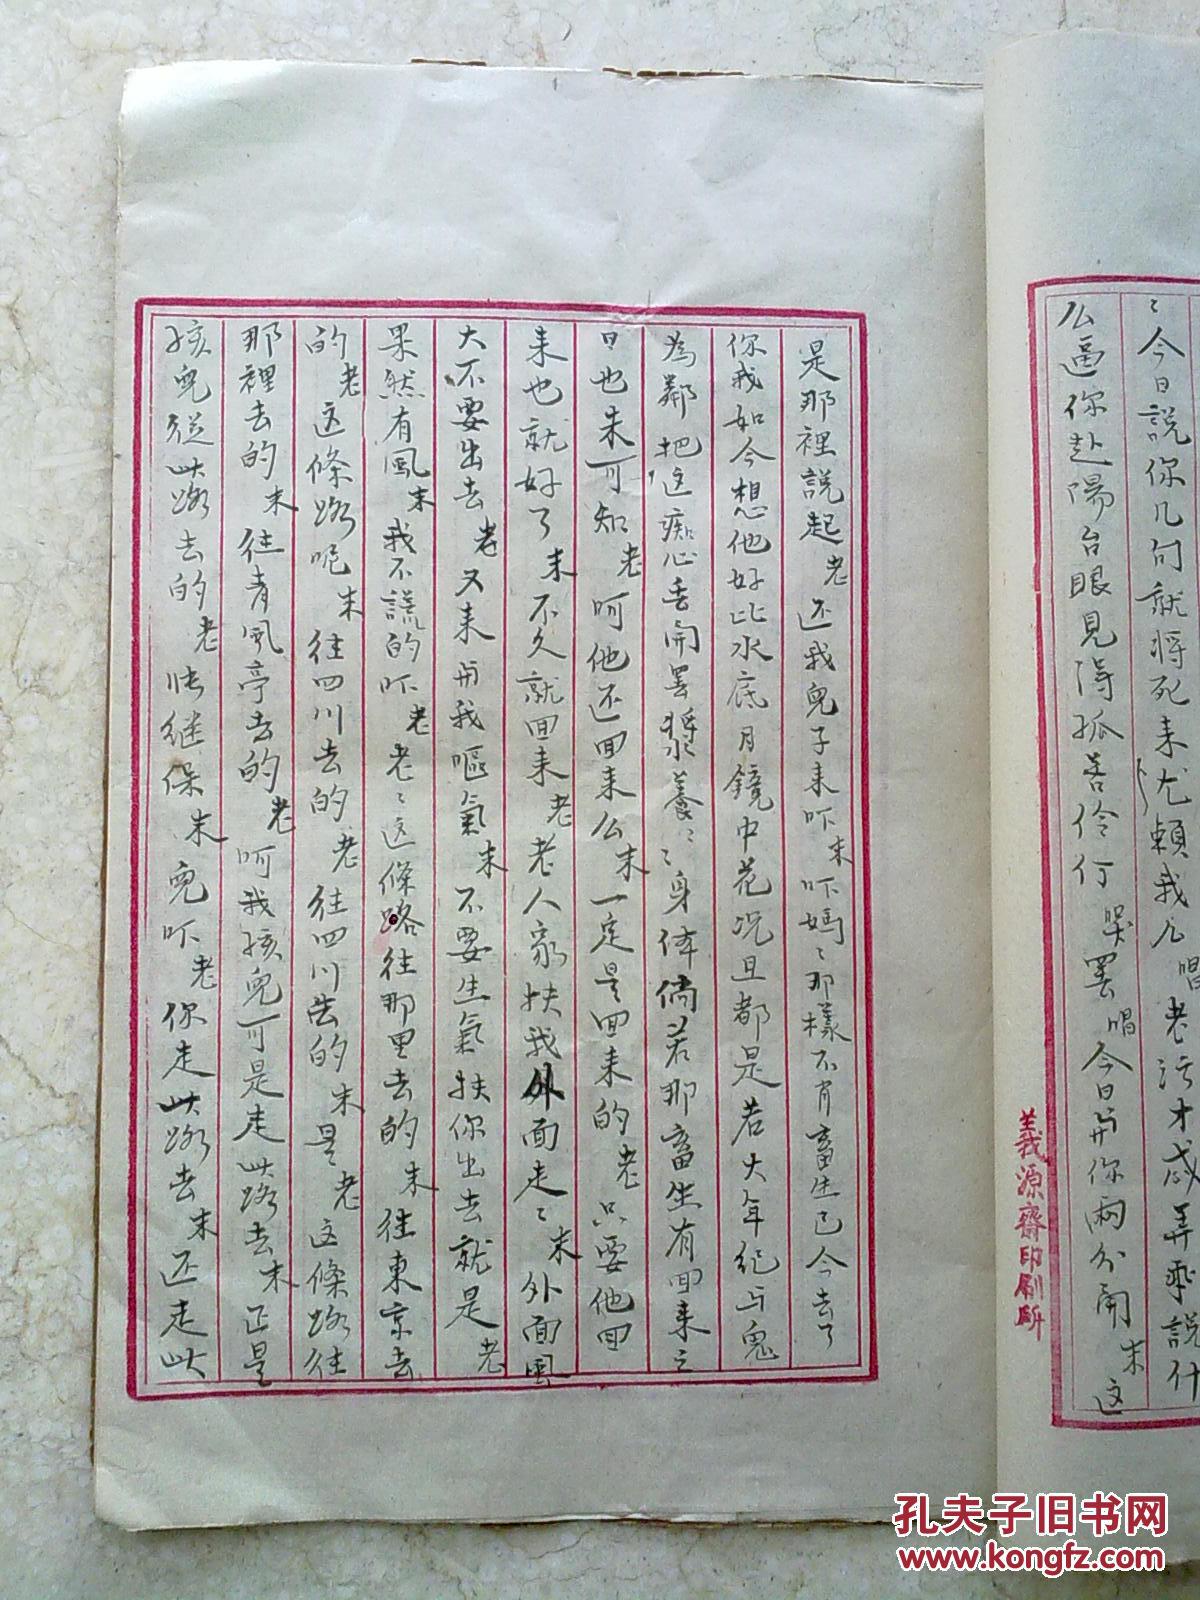 ミ今日説你几句就將死来尤賴我几唱老污才感弄乖説什
么逼你赴陽台眼見得孤苦伶仃哭罢唱今日与你兩分開末这
義源齋印刷所
是那裡説起老还我兒子来吓末吓媽ミ那樣不肖畜生已今去了
你我如今想他好比水底月鏡中花况且都是若大年纪与鬼
為鄰把这痴心丢開罢將養ミ身体倘若那畜生有回来之
日也未可知老呵他还回来么末一定是回来的老只要他回
来也就好了末不久就回来老老人家扶我外面走ミ末外面風
大不要出去老又来与我嘔氣末不要生氣扶你出去就是老
果然有風末我不謊的吓老老ミ这條路往那里去的末往東京去
的老这條路呢末往四川去的老往四川去的末是老这條路往
那裡去的末往青風亭去的老呵我孩兒可是走此路去末正是
孩兒從此路去的老张继保末兒吓老你走此路去末还走此
孔夫子旧书网
www.kongfz.com